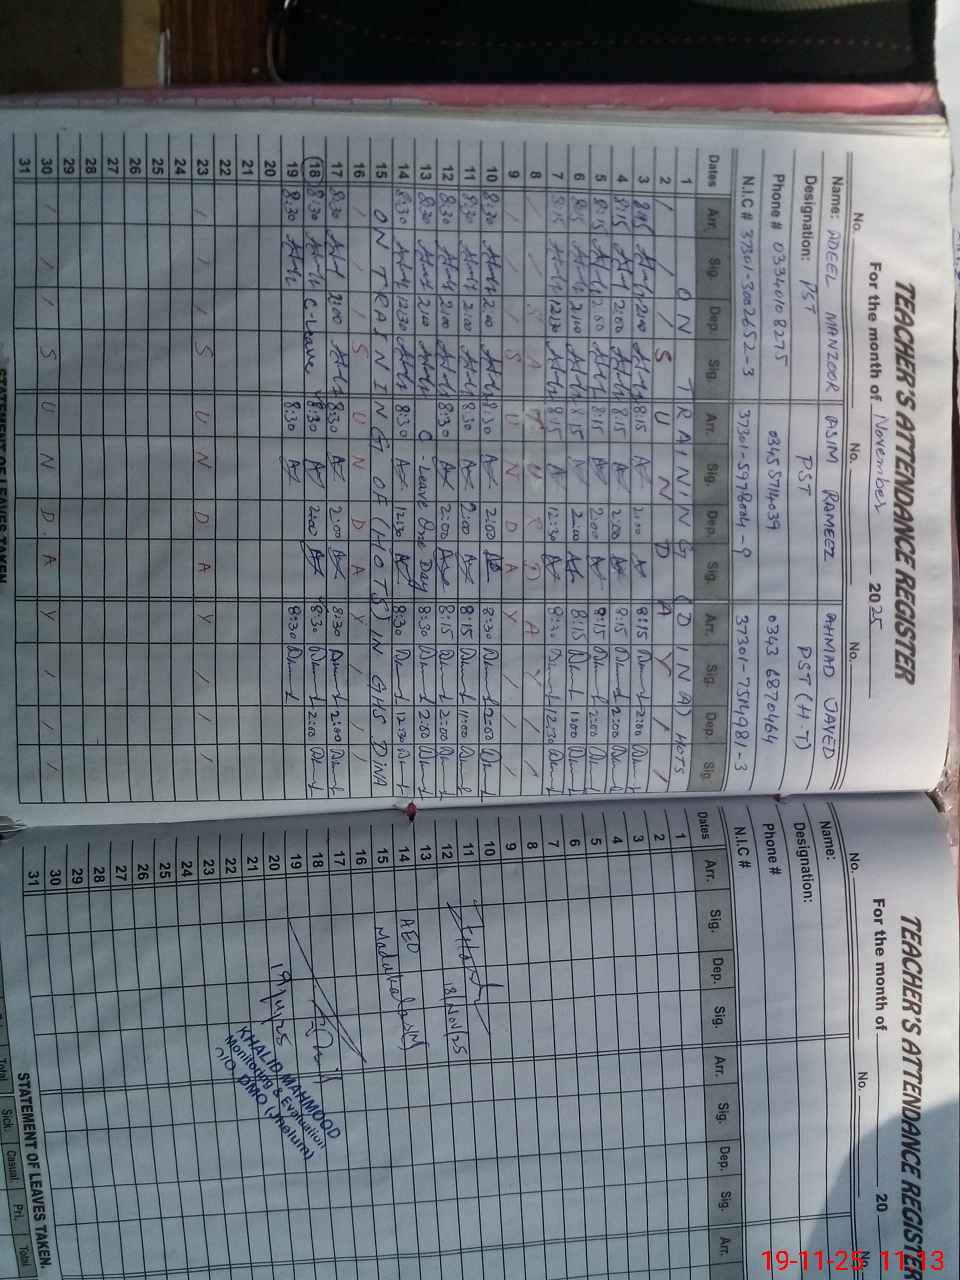 TEACHER'S ATTENDANCE REGISTER
For the month of November 2025
No. No. No.
Name: ADEEL MANZOOR ASIM RAMEEZ AHMAD JAVED
Designation: PST PST PST (H-T)
Phone # 03340108275 03455714039 0343 6870464
N.I.C # 37301-3002652-3 37301-5978004-9 37301-7514981-3
Dates Arr. Sig. Dep. Sig. Arr. Sig. Dep. Sig. Arr. Sig. Dep. Sig.
1 ON TRAINING (DINA) HOTS
2 / / S U N D A Y / /
3 8:15 2:00 8:15 2:00 8:15 2:00
4 8:15 2:00 8:15 2:00 8:15 2:00
5 8:15 2:00 8:15 2:00 8:15 2:00
6 8:15 2:00 8:15 2:00 8:15 1:00
7 8:15 12:30 8:15 12:30 8:30 12:30
8
9 / / / S U N D A Y / / /
10 8:30 2:00 8:30 2:00 8:30 2:00
11 8:30 2:00 8:30 2:00 8:15 11:00
12 8:30 2:00 8:30 2:00 8:15 2:00
13 8:30 2:00 C-Leave One Day 8:30 2:00
14 8:30 12:30 8:30 12:30 8:30 12:30
15 ON TRAINING OF (HOTS) IN GHS DINA
16 / / / S U N D A Y / / /
17 8:30 2:00 8:30 2:00 8:30 2:00
18 8:30 C-Leave 8:30 2:00 8:30 2:00
19 8:30 8:30 8:30
20
21
22
23 / / / S U N D A Y / / /
24
25
26
27
28
29
30 / / / S U N D A Y / / /
31
STATEMENT OF LEAVES TAKEN
TEACHER'S ATTENDANCE REGISTER
For the month of 20
No. No. No.
Name:
Designation:
Phone #
N.I.C #
Dates Arr. Sig. Dep. Sig. Arr. Sig. Dep. Sig. Arr.
1
2
3
4
5
6
7
8
9
10
11
12
13
14
15
16
17
18
19
20
21
22
23
24
25
26
27
28
29
30
31
13/Nov/25
AEO
19/11/25
KHALID MAHMOOD
Monitoring & Evaluation
O/O DMO (Jhelum)
STATEMENT OF LEAVES TAKEN.
Total Sick. Casual Pri. Total
19-11-25 11:13